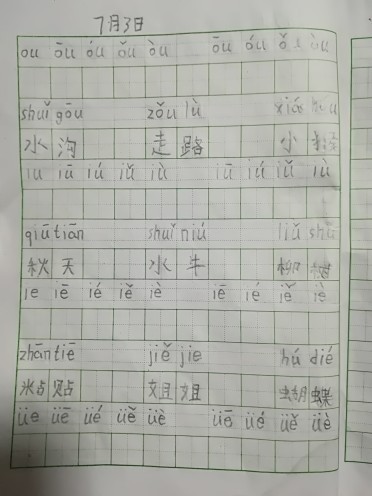 7月3日
ou ōu óu ǒu òu ōu óu ǒu òu
shuǐ gōu zǒu lù xiǎo hóu
水 沟 走 路 小 猴
iu iū iú iǔ iù iū iú iǔ iù
qiū tiān shuǐ niú liǔ shù
秋 天 水 牛 柳 树
ie iē ié iě iè iē ié iě iè
zhān tiē jiě jie hú dié
粘 贴 姐 姐 蝴 蝶
üe üē üé üě üè üē üé üě üè